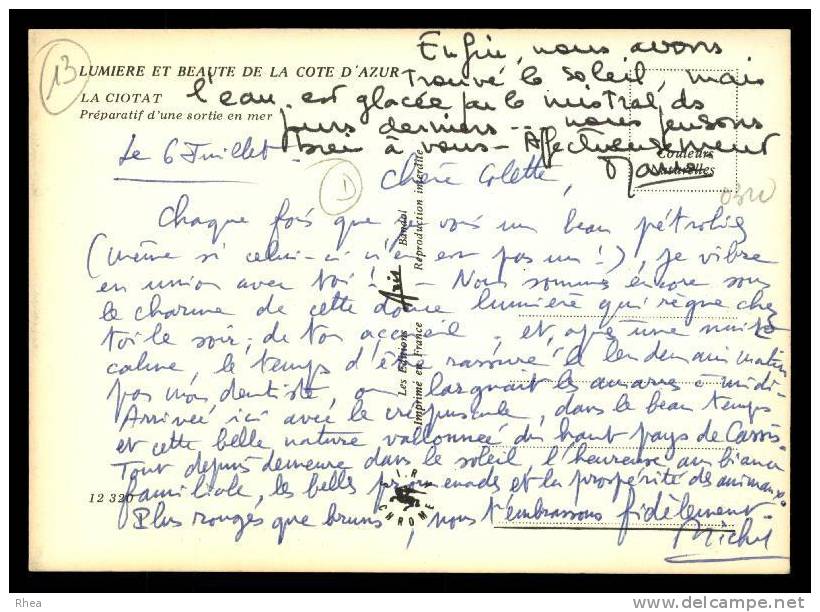 13
LUMIERE ET BEAUTE DE LA COTE D'AZUR
LA CIOTAT
Préparatif d'une sortie en mer
Enfin, nous avons
trouvé le soleil, mais
l'eau est glacée par le mistral des
jours derniers... nous pensons
bien à vous - Affectueusement
Couleurs
Naturelles
Le 6 Juillet -
1
Chère Colette,
Chaque fois que je vois un beau pétrolier
(même si celui-ci n'en est pas un !), je vibre
en union avec toi ! - Nous sommes encore sous
le charme de cette douce lumière qui règne chez
toi le soir, de ton accueil - et, après une nuit
calme, le temps d'être rassuré le lendemain matin
par mon dentiste, on larguait les amarres à midi -
Arrivée ici avec le crépuscule, dans le beau temps
et cette belle nature vallonnée du haut pays de Cassis.
Tout depuis demeure dans le soleil, l'heureuse ambiance
familiale, les belles promenades et la prospérité des animaux.
Plus rouges que bruns, nous t'embrassons fidèlement -
Michel
12 320
Les Editions Aris Bandol
Imprimé en France Reproduction interdite
IRIS
CHROME
Rhea
www.delcampe.net